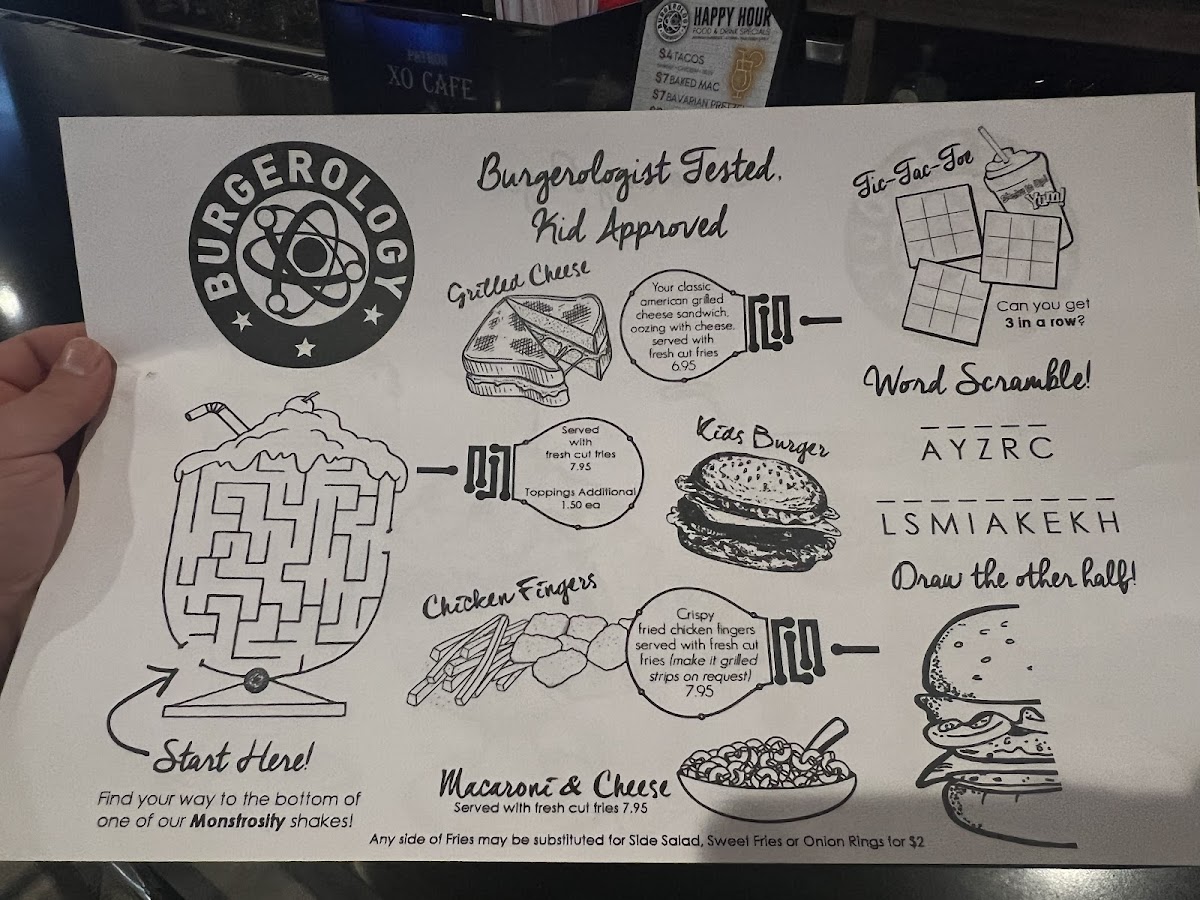 PATRÓN
XO CAFE
BURGEROLOGY
HAPPY HOUR
FOOD & DRINK SPECIALS
$4 TACOS
$7 BAKED MAC
$7 BAVARIAN PRETZEL
BURGEROLOGY
Burgerologist Tested.
Kid Approved
Grilled Cheese
Your classic
american grilled
cheese sandwich,
oozing with cheese.
served with
fresh cut fries
6.95
Served
with
fresh cut fries
7.95
Toppings Additional
1.50 ea
Kids Burger
Chicken Fingers
Crispy
fried chicken fingers
served with fresh cut
fries (make it grilled
strips on request)
7.95
Macaroni & Cheese
Served with fresh cut fries 7.95
Any side of Fries may be substituted for Side Salad, Sweet Fries or Onion Rings for $2
Start Here!
Find your way to the bottom of
one of our Monstrosity shakes!
Tic-Tac-Toe
Yum!
Can you get
3 in a row?
Word Scramble!
AYZRC
LSMIAKEKH
Draw the other half!